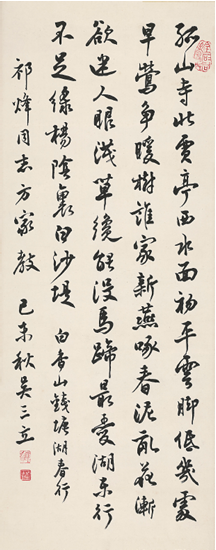 孤山寺北賈亭西水面初平雲脚低幾處
早鶯爭暖樹誰家新燕啄春泥亂花漸
欲迷人眼淺草纔能没馬蹄最愛湖東行
不足綠楊陰裏白沙堤 白香山錢塘湖春行
祁烽同志方家教 己未秋吳三立